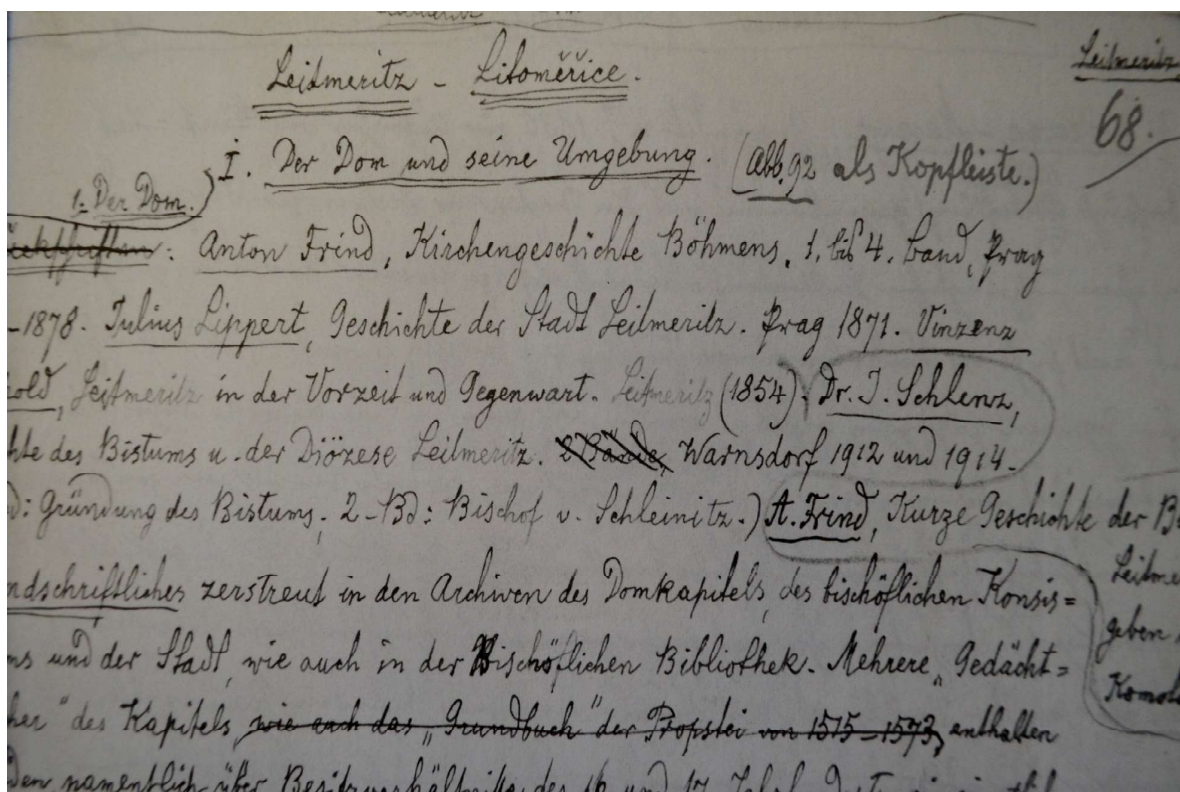 Leitmeritz
Leitmeritz - Litoměřice.
68.
I. Der Dom und seine Umgebung. (Abb. 92 als Kopfleiste.)
1. Der Dom.
: Anton Frind, Kirchengeschichte Böhmens, 1. bis 4. Band, Prag
-1878. Julius Lippert, Geschichte der Stadt Leitmeritz. Prag 1871. Vinzenz
old, Leitmeritz in der Vorzeit und Gegenwart. Leitmeritz (1854). Dr. J. Schlenz,
hte des Bistums u. der Diözese Leitmeritz. 2 Bände, Warnsdorf 1912 und 1914.
d: Gründung des Bistums. 2-Bd: Bischof v. Schleinitz.) A. Frind, Kurze Geschichte der B
Leitme
ndschriftliches zerstreut in den Archiven des Domkapitels, des bischöflichen Konsis=
geben
ns und der Stadt, wie auch in der Bischöflichen Bibliothek. Mehrere „Gedächt=
Komot
her" des Kapitels, wie auch das „Grundbuch" der Propstei von 1515-1573, enthalten
den namentlich über Besitzverhältnisse des 16. und 17. Jahrh.